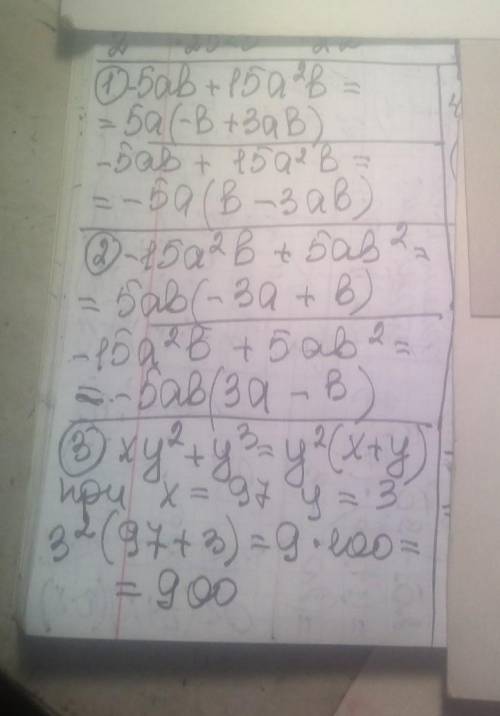 ① -5ab + 15a²b =
= 5a(-b + 3ab)
-5ab + 15a²b =
= -5a(b - 3ab)
② -15a²b + 5ab² =
= 5ab(-3a + b)
-15a²b + 5ab² =
= -5ab(3a - b)
③ xy² + y³ = y²(x+y)
при x = 97 y = 3
3²(97+3) = 9·100 =
= 900